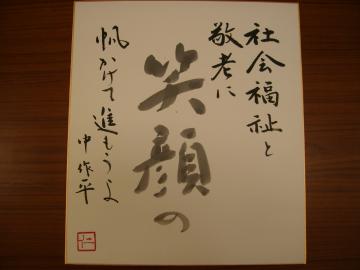 社会福祉と
敬老に
笑顔の
帆かけて進もうよ
中作平